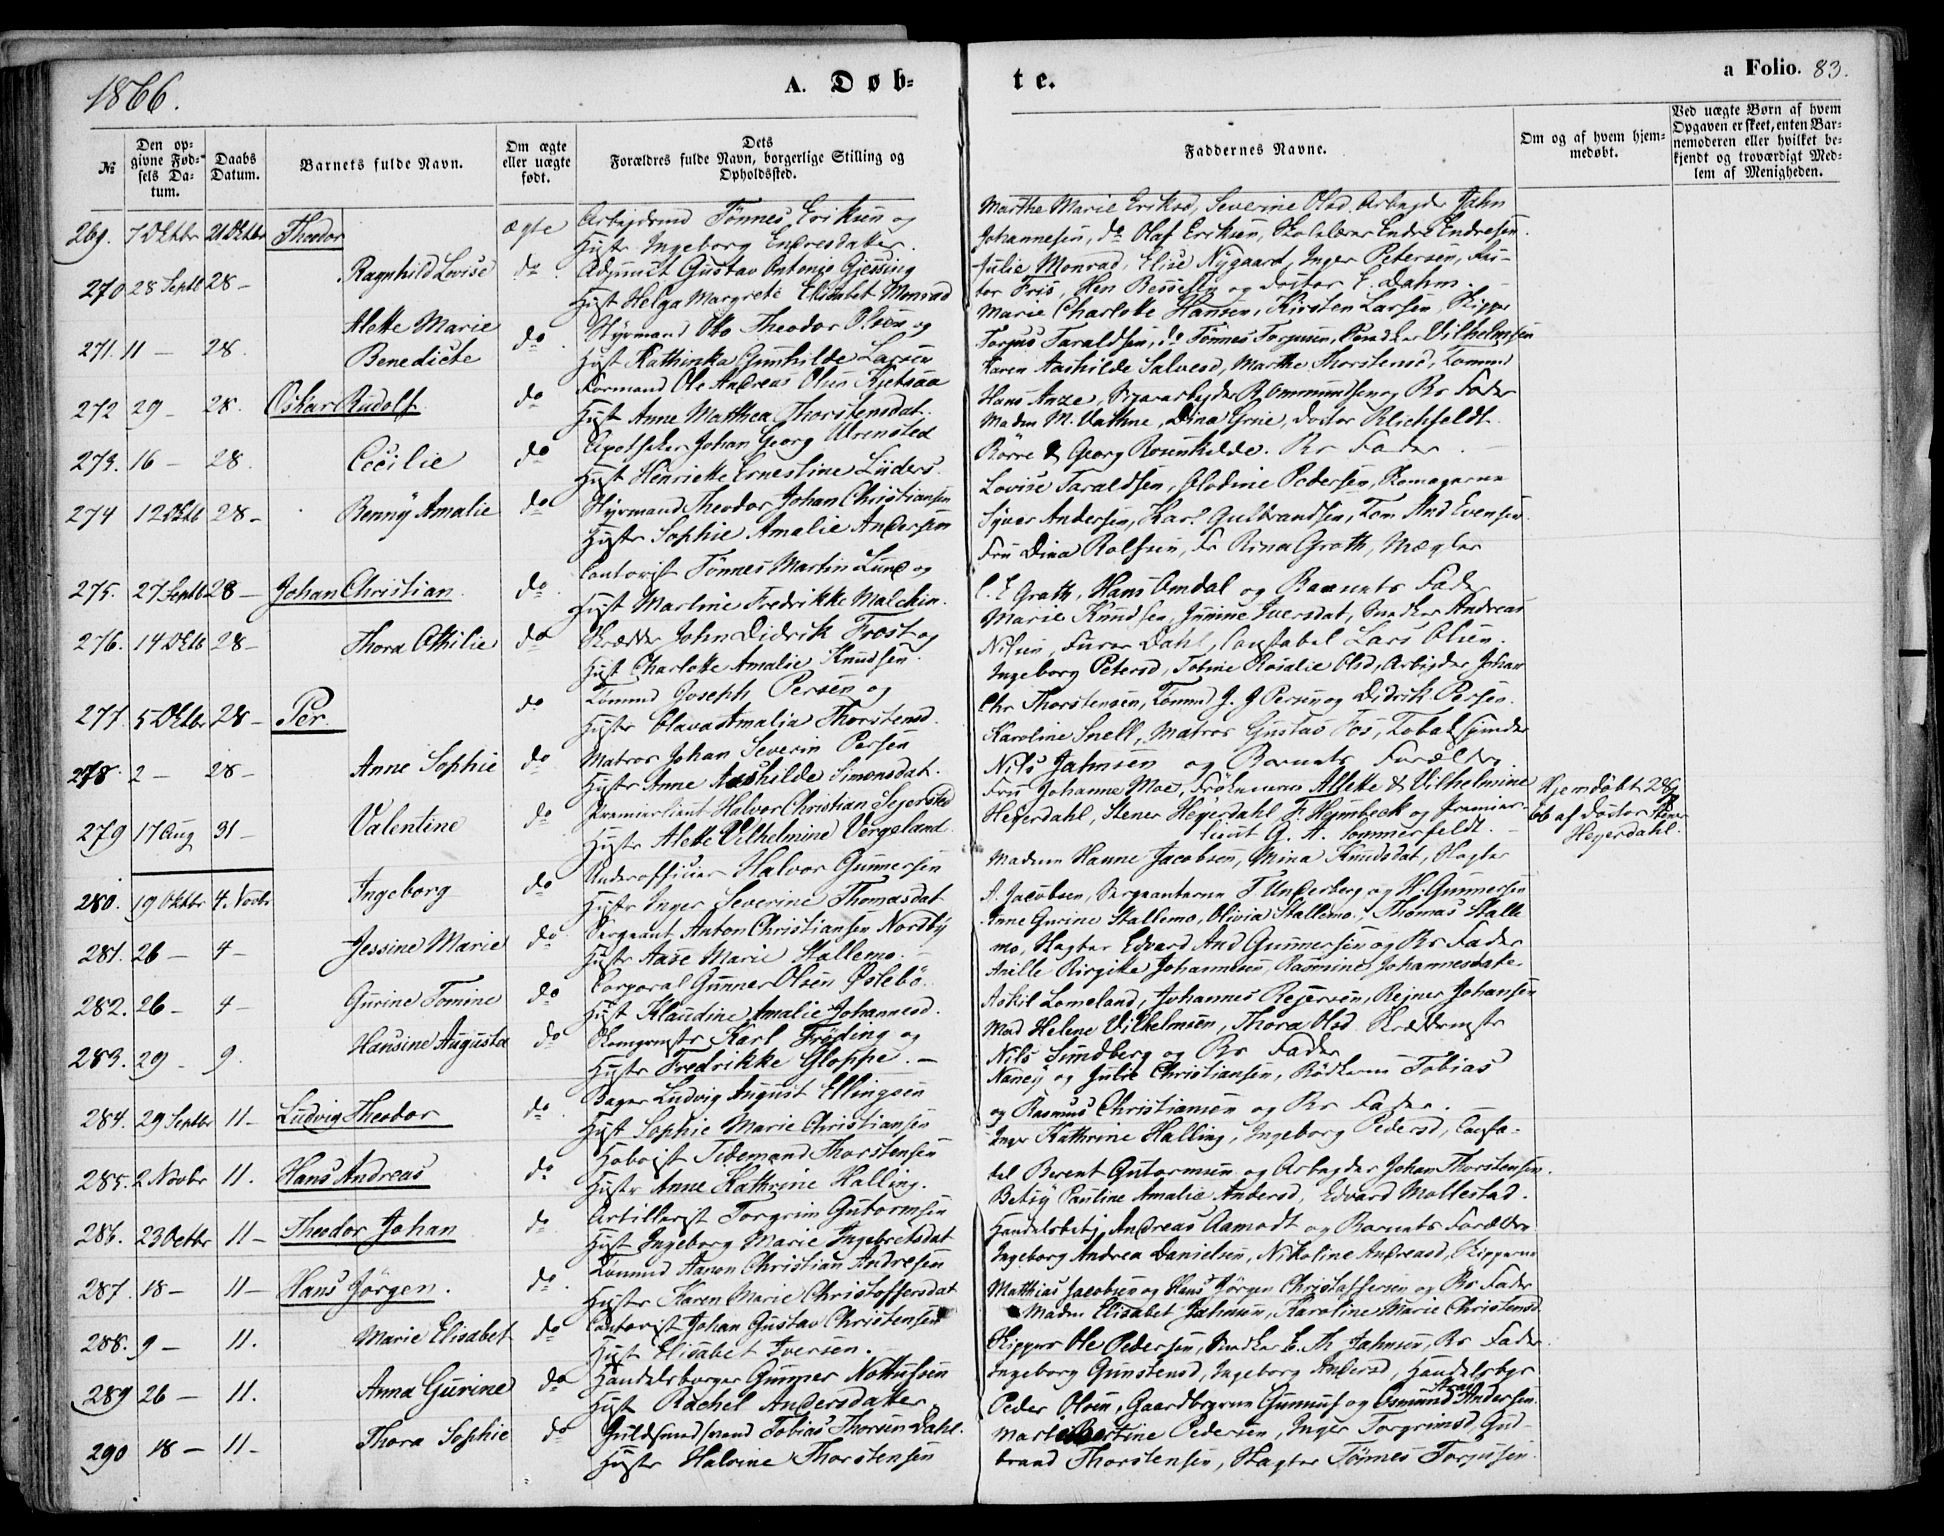 1866.
A. Døb-
te.
a Folio. 83.
№
Den op-
givne Fød-
sels Da-
tum.
Daabs
Datum.
Barnets fulde Navn.
Om ægte
eller uægte
født.
Dets
Forældres fulde Navn, borgerlige Stilling og
Opholdssted.
Faddernes Navne.
Om og af hvem hjem-
medøbt.
Ved uægte Børn af hvem
Opgaven er skeet, enten Bar-
nemoderen eller hvilket be-
kjendt og troværdigt Med-
lem af Menigheden.
269. 7 Oktbr 21 Oktbr Theodor ægte Arbejdsmd Tønnes Eriksen og
Hust Ingeborg Endresdatter.
Marthe Marie Eriksd, Severine Olsd. Arbejder Jahn
Johannesen, do Olaf Eriksen, Skolelærer Endre Endresen.
270 28 Septb 28 - Ragnhild Lovise do Adjunct Gustav Antonio Gjessing
Hust Helga Margrete Elisabet Monrad
Julie Monrad, Elise Nygaard, Inger Petersen,
Friis, Hen Bessesen og Doctor E. Dahm.
271. 11 - 28. Alette Marie
Benedicte do Styrmand Otto Theodor Olsen og
Hust Kathinka Gunhilde Larsen
Marie Charlotte Hansen, Kirsten Larsen, Skipper
Torjus Taraldsen, do Tønnes Torjusen, Vilhelmsen
272 29 - 28. Oskar Rudolf do Formand Ole Andreas Olsen Kjetsaa
Hust Anne Matthea Thorstensdat.
Karen Aashilde Salvesd, Marthe Thorstensd, Tømmd
Hans Aase, Sigararbejder R. Ommundsen og Bs Fader
273. 16 - 28. Cecilie do Apotheker Johan Georg Ulrensted
Hust Henriette Ernestine Lüders.
Madm M. Vathne, Dina Grie, Doctor Blichfeldt.
Børre & Georg Rosenkilde. Bs Fader.
274 12 Oktb 28 - Benny Amalie do Styrmand Theodor Johan Christiansen
Hustr Sophie Amalie Andersen
Lovise Taraldsen, Olodine Pedersen, Skomagerne
Syver Andersen, Karl Gulbrandsen, Tøm And Evensen.
275. 27 Septb 28 - Johan Christian. do Contorist Tønnes Martin Lund og
Hust Martine Fredrikke Malchin.
Fru Dina Rolfsen, Fr Rina Groth, Mægler
C. E Groth, Hans Omdal og Barnets Fader
276. 14 Oktb 28 - Thora Othilie do Skrædder John Didrik Frost og
Hust Charlotte Amalie Knudsen.
Marie Knudsen, Junine Iversdat, Snedker Andreas
Nilsen, Furer Dahl, Constabel Lars Olsen.
277. 5 Oktbr 28 - Per do Tømmd Joseph Persen og
Hustr Olava Amalia Thorstensd.
Ingeborg Petersd, Tobine Rosalie Olsd, Arbejder Johan
Chr Thorstensen, Tømmd J. J Persen og Didrik Persen.
278. 2 - 28 - Anne Sophie do Matros Johan Severin Persen
Hustr Anne Aashilde Simonsdat.
Karoline Snell, Matros Gustav Fos, Tobakspinder
Nils Jahnsen og Barnets Forældre.
279 17 Aug 31 - Valentine do Premierlieut Halvor Christian Sejersted
Hustr Alette Vilhelmine Vergeland.
Fru Johanne Moe, Frøknerne Allette & Vilhelmine
Heyerdahl, Stener Heyerdahl F. Heymbeck og Premier-
lieut G. A. Sommerfeldt. -
Hjemdøbt 28/9
66 af Doctor Stener
Heyerdahl.
280. 19 Oktbr 4. Novbr Ingeborg do Underofficer Halvor Gunnersen
Hustr Inger Severine Thomasdat
Madmm Hanne Jacobsen, Mina Knudsdat, Slagter
A. Jacobsen, Sergeanterne T. Underberg og H. Gunnersen
281. 26 - 4 - Jessine Marie do Sergeant Anton Christiansen Nordby
Hustr Aase Marie Stallemo. -
Anne Gurine Stallemo, Olivia Stallemo, Thomas Stalle
mo, Slagter Edvard And Gunnersen og Bs Fader
282. 26 - 4 - Gurine Tomine do Corporal Gunner Olsen Øslebø.
Hust Klaudine Amalie Johannesd.
Anille Birgitte Johannesen, Rasmine Johannesdatr.
Askil Lomeland, Johannes Rejersen, Rejner Johansen
283. 29 - 9. Hansine Augusta do Skomgrmstr Karl Frøding og
Hustr Fredrikke Gloppe. -
Mad Helene Vilhelmsen, Thora Olsd Skræddermstr
Nils Sundberg og Bs Fader
284. 29 Septbr 11 - Ludvig Theodor do Bager Ludvig August Ellingsen
Hust Sophie Marie Christiansen
Nancy og Julie Christiansen, Bødkerne Tobias
og Rasmus Christiansen og Bs Fader. -
285. 2 Novbr 11. Hans Andreas do Hoboist Tidemand Thorstensen
Hustr Anne Kathrine Halling.
Inger Kathrine Halling, Ingeborg Pedersd, Consta-
bel Berent Gutormsen og Arbejder Johan Thorstensen.
286. 23 Octbr 11 - Theodor Johan do Artillerist Torgrim Gutormsen
Hust Ingeborg Marie Ingebretsdat
Betsy Pauline Amalie Andersd, Edvard Mollestad.
Handelsbetj Andreas Aamodt og Barnets Forældre
287. 18 - 11 - Hans Jörgen. do Tømmd Aanon Christian Andresen
Hustr Karen Marie Christoffersdat
Ingeborg Andrea Danielsen, Nikoline Andreasd, Skipperne
Matthias Jacobsen og Hans Jørgen Christoffersen og Bs Fader
288. 9 - 11. Marie Elisabet do Contorist Johan Gustav Christensen
Hust Elisabet Iversen.
Madm Elisabet Jahnsen, Karoline Marie Christensd
Skipper Ole Pedersen, Snedker E. Th Jahnsen, Bs Fader.
289 26 - 11. Anna Gurine do Handelsborger Gunner Nottulsen
Hust Rachel Andersdatter.
Ingeborg Gunstensd, Ingeborg Andersd, Handelsbgr
Peder Olsen, Gaardbrgerne Gunnuf og Osmund Aanen Andersen
290 18 - 11 - Thora Sophie do Guldsmedsvend Tobias Thorsen Dahl.
Hustr Halvine Thorstensen
Marte Bertine Pedersen, Inger Torgrimsd, Gud-
brand Thorstensen, Slagter Tønnes Torjussen.